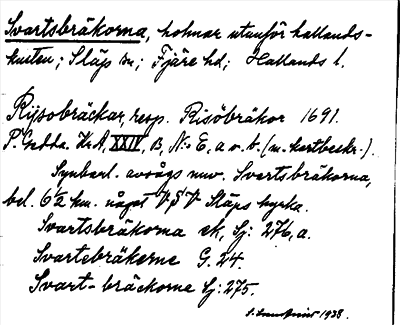 Svartsbräkorna, holmar utanför Hallands-
kusten; Släps sn; Fjäre hd; Hallands l.
Rysobräckar, resp. Risöbräkor 1691.
P. Gedda. KrA, XXIV, B, N:o E, a o. b. (m. kartbeskr.).
Synbarl. avsågs nuv. Svartsbräkorna,
bel. 6½ km. något V S V Släps kyrka.
Svartsbräkorna ek, Sj: 276, a.
Svartebräkerne G. 24.
Svart-bräckorne Sj: 275.
1938.